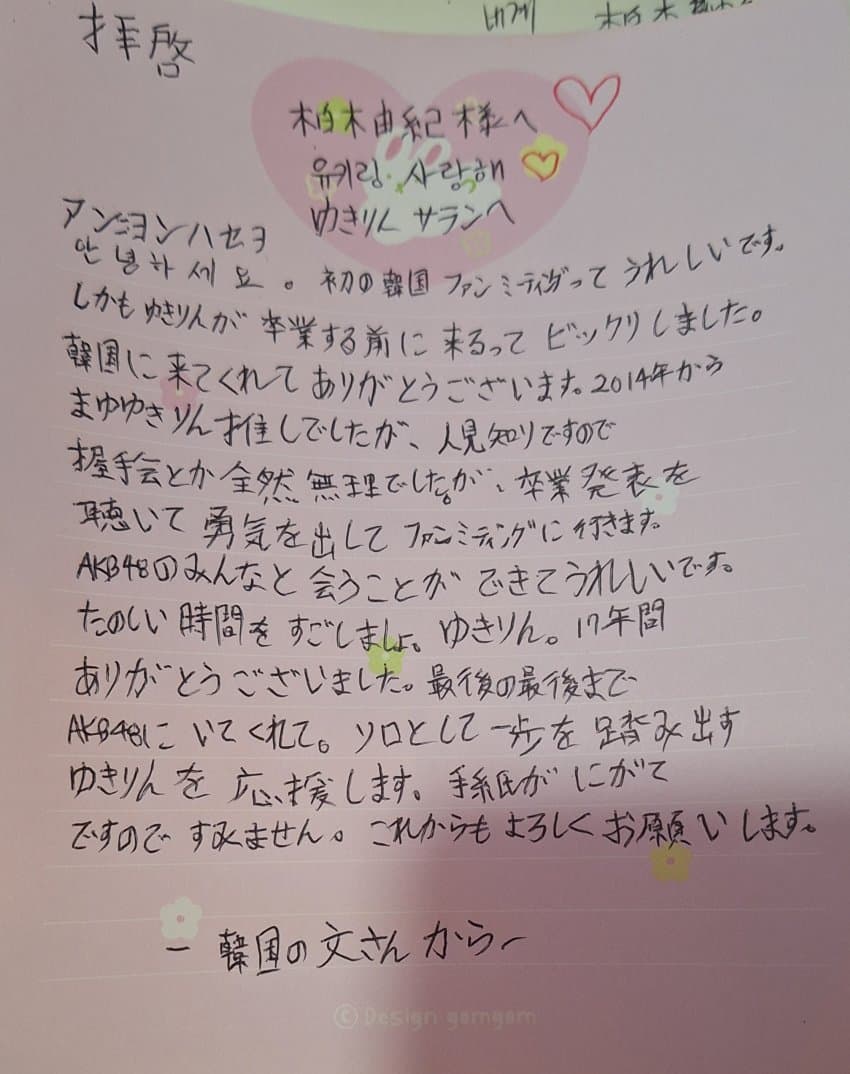 네게 柏木
拝啓
柏木由紀様へ
유키링 사랑해
ゆきりん サランヘ
アンニョンハセヨ
안녕하세요。初の韓国 ファンミーティングってうれしいです。
しかもゆきりんが 卒業する前に 来るって ビックリしました。
韓国に来てくれてありがとうございます。2014年から
まゆゆきりん推しでしたが、人見知りですので
握手会とか全然無理でしたが、卒業発表を
聴いて 勇気を出して ファンミティングに行きます。
AKB48のみんなと会うことができてうれしいです。
たのしい時間をすごしましょ。ゆきりん。17年間
ありがとうございました。最後の最後まで
AKB48にいてくれて。ソロとして一歩を踏み出す
ゆきりんを応援します。手紙がにがて
ですのですみません。これからもよろしくお願いします。
- 韓国の文さんから -
© Design gomgom